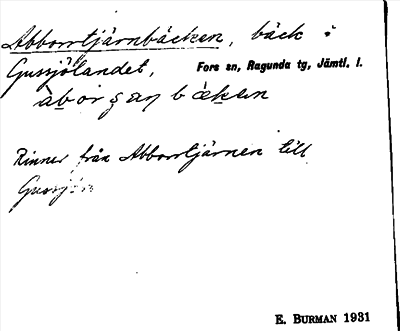 Abborrtjärnbäcken, bäck i
Gussjölandet, Fors sn, Ragunda tg, Jämtl. l.
Rinner från Abborrtjärnen till
E. BURMAN 1931